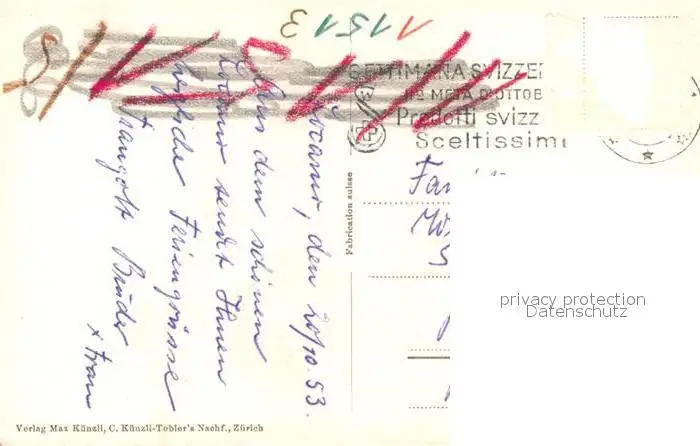 11513
SETTIMANA SVIZZE
META D'OTTOB
Prodotti svizz
Sceltissimi
Locarno, den 20/10.53.
Aus dem schönen
Locarno sendt Ihnen
herzliche Feriengrüsse
Traugott Bruder
+ Frau
Fabrication suisse
Fam
privacy protection
Datenschutz
Verlag Max Künzli, C. Künzli-Tobler's Nachf., Zürich